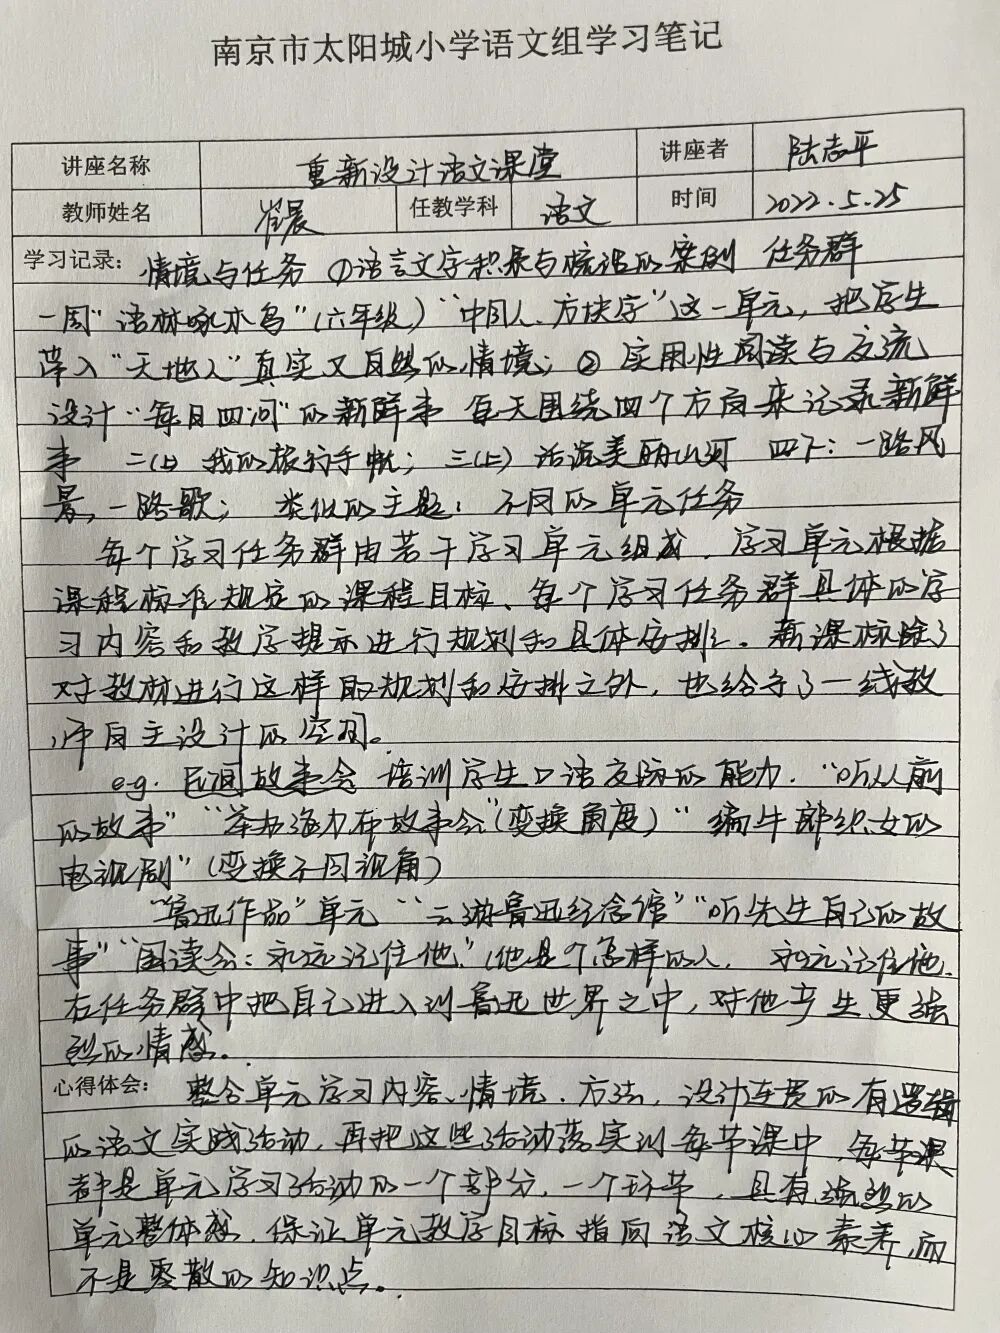 南京市太阳城小学语文组学习笔记
讲座名称 重新设计语文课堂 讲座者 陆志平
教师姓名 崔晨 任教学科 语文 时间 2022.5.25
学习记录: 情境与任务 ①语言文字积累与梳理的案例 任务群
一周“语林啄木鸟”(六年级)“中国人、方块字”这一单元,把学生
带入“天地人”真实又自然的情境;②实用性阅读与交流
设计“每日四问”的新鲜事 每天围绕四个方向来记录新鲜
事 二(上)我的旅行手帐;三(上)话说美丽山河 四下:一路风
景,一路歌; 类似的主题:不同的单元任务
每个学习任务群由若干学习单元组成.学习单元根据
课程标准规定的课程目标、每个学习任务群具体的学
习内容和教学提示进行规划和具体安排。新课标除了
对教材进行这样的规划和安排之外,也给予了一线教
师自主设计的空间。
e.g. 民间故事会 培训学生口语交际的能力.“听从前
的故事”“举办强力布故事会”(变换角度)“编牛郎织女的
电视剧”(变换不同视角)
“鲁迅作品”单元“云游鲁迅纪念馆”“听先生自己的故
事”“阅读会:永远记住他”(他是个怎样的人. 永远记住他.
在任务群中把自己进入到鲁迅世界之中,对他产生更强
烈的情感。
心得体会: 整合单元学习内容、情境、方法,设计连贯的有逻辑
的语文实践活动,再把这些活动落实到每节课中,每节课
都是单元学习活动的一个部分,一个环节,具有强烈的
单元整体感,保证单元教学目标指向语文核心素养,而
不是零散的知识点。